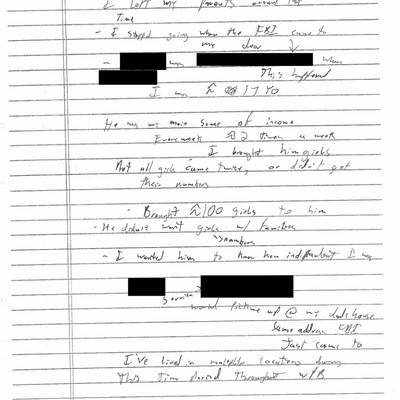 I left my parents around 
Time
- I stopped going when the FBI came to
my door
- was when
This happened
I was ≈ 17 YO
He was my main source of income
Every week ≈ 2 times a week
I brought him girls
Not all girls came twice, or didn't get
their numbers
- Brought ≈ 100 girls to him
- He didn't want girls w/ families
- I wanted him to know how independent I was
would picture up @ my dads house
Same address FBI
Just came to
I've lived in multiple locations during
This Time period throughout WPB